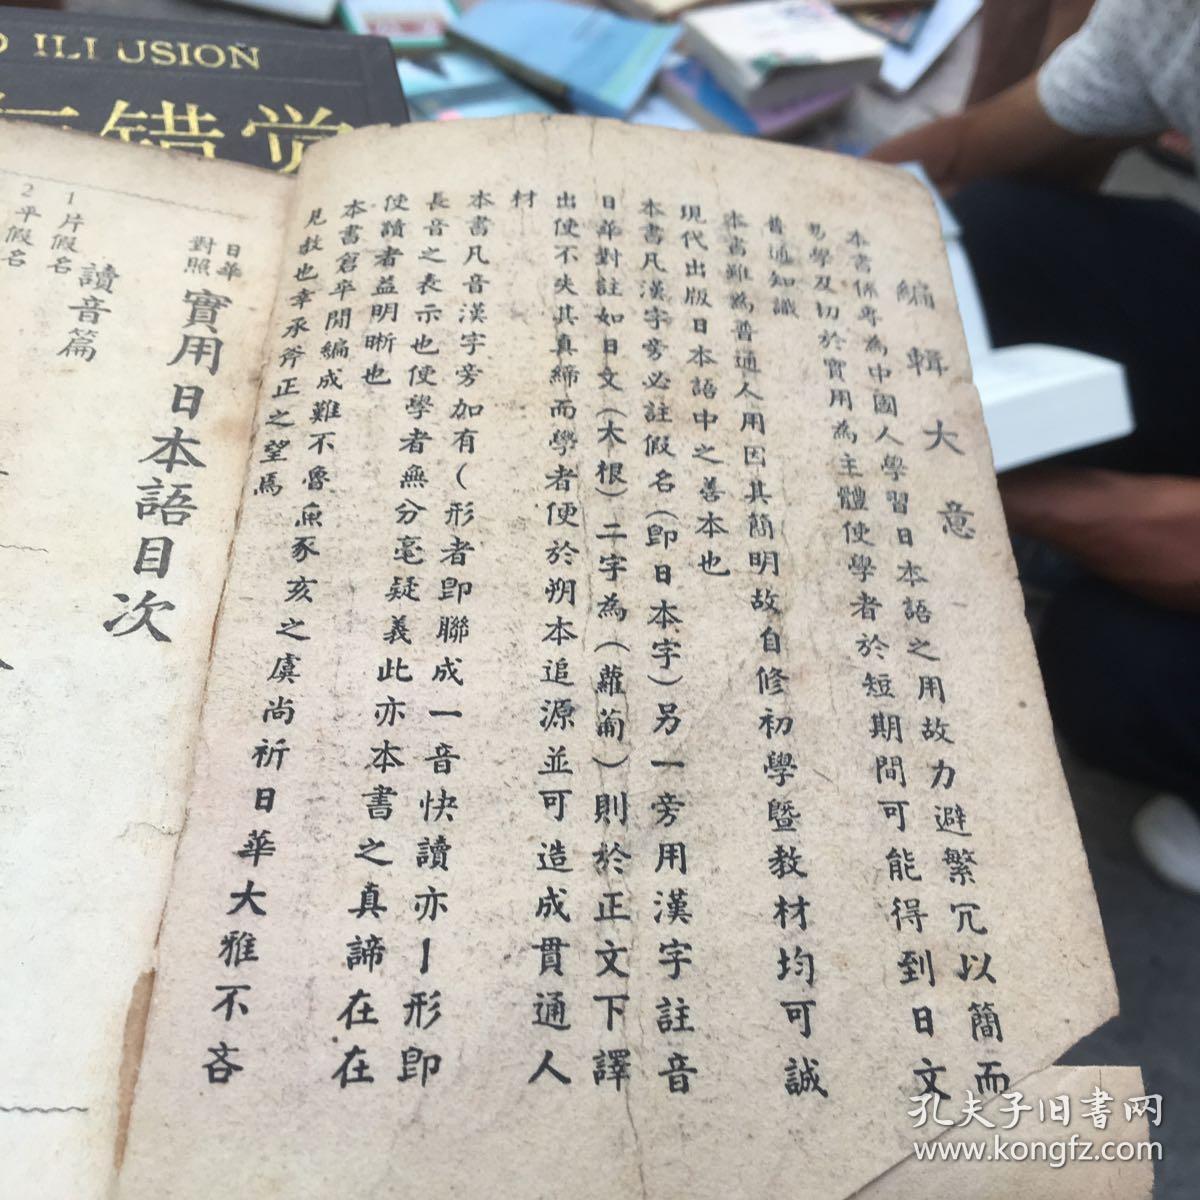 編輯大意
本書係專為中國人學習日本語之用故力避繁冗以簡而
易學及切於實用為主體使學者於短期間可能得到日文
普通知識
本書雖為普通人用因其簡明故自修初學暨教材均可誠
現代出版日本語中之善本也
本書凡漢字旁必註假名(即日本字)另一旁用漢字註音
日華對註如日文(大根)二字為(蘿蔔)則於正文下譯
出使不失其真締而學者便於朔本追源並可造成貫通人
材
本書凡音漢字旁加有(形者即聯成一音快讀亦ー形即
長音之表示也使學者無分毫疑義此亦本書之真諦在在
使讀者益明晰也
本書倉卒間編成難不魯魚豕亥之虞尚祈日華大雅不吝
見教也幸承斧正之望焉
日華對照實用日本語目次
讀音篇
1 片假名
2 平假名
ILLUSION
错觉
孔夫子旧书网
www.kongfz.com